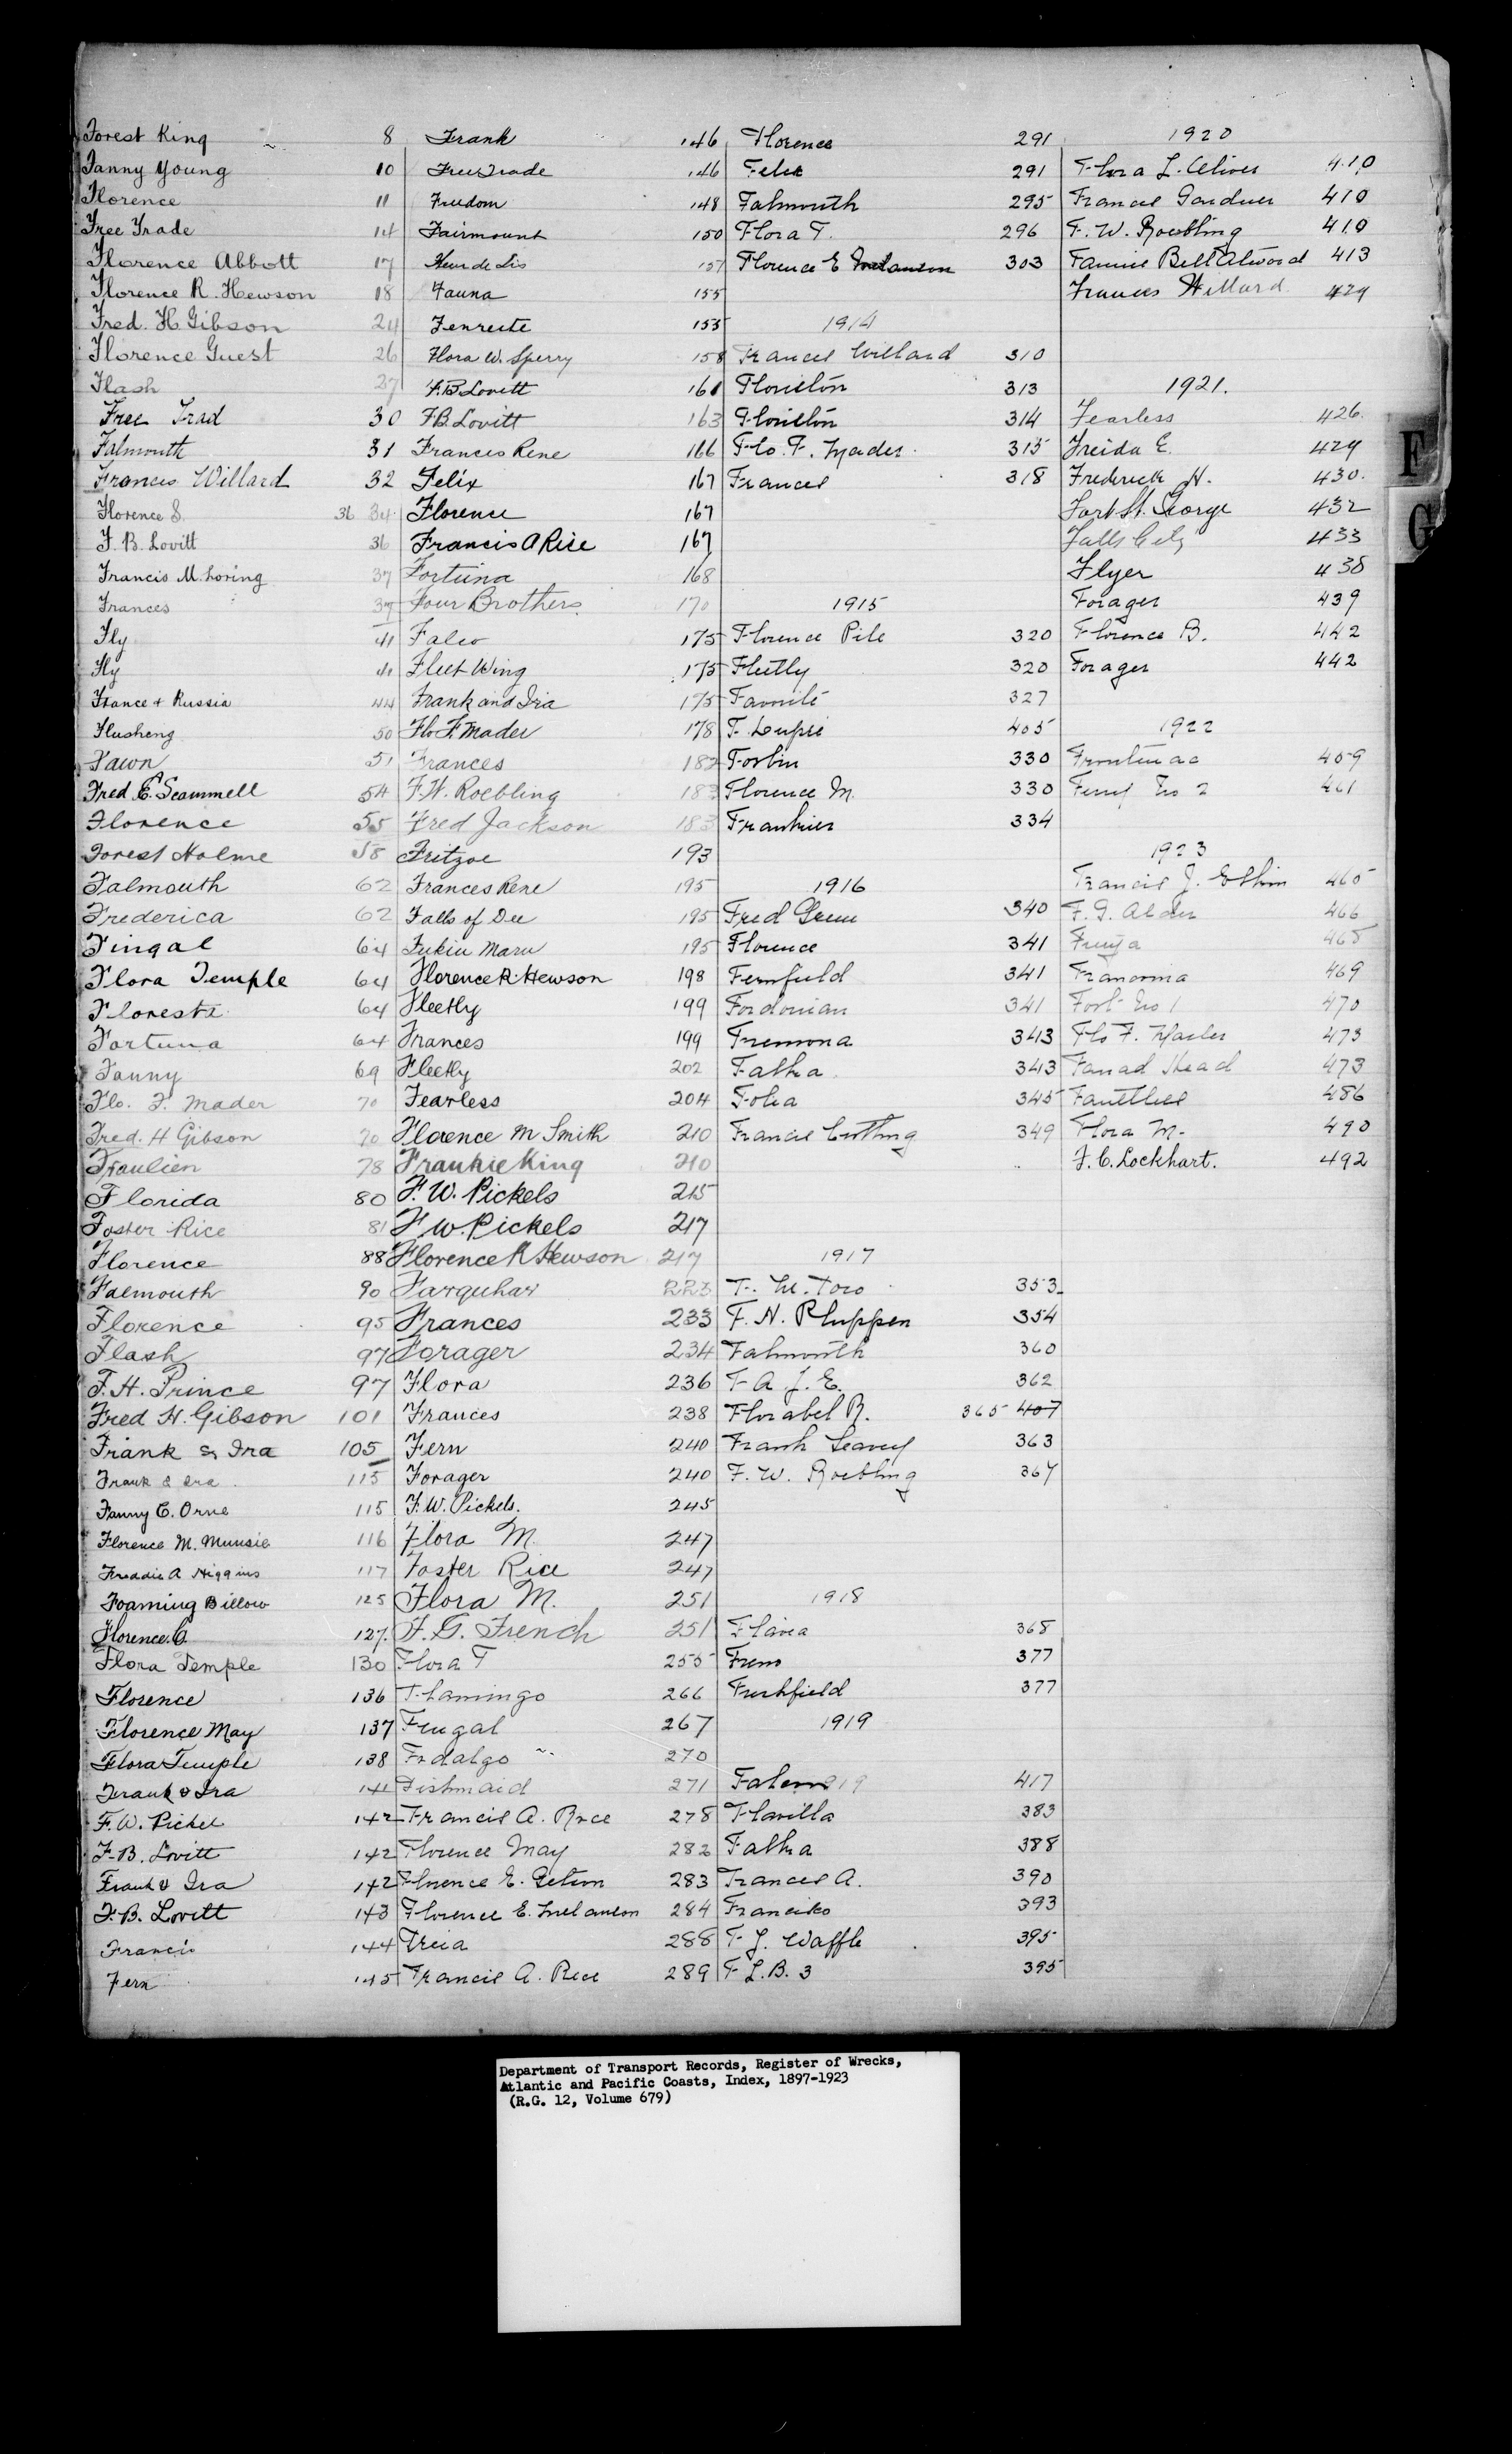 Forest King 8
Fanny Young 10
Florence 11
Free Trade 14
Florence Abbott 17
Florence R. Hewson 18
Fred. H. Gibson 24
Florence Guest 26
Flash 27
Free Trad 30
Falmouth 31
Francis Willard 32
Florence S. 36 34
F. B. Lovitt 36
Francis M. Loring 37
Frances 37
Fly 41
Fly 41
France & Russia 44
Flusheng 50
Fawn 51
Fred. E. Scammell 54
Florence 55
Forest Holme 58
Falmouth 62
Frederica 62
Fingal 64
Flora Temple 64
Floresta 64
Fortuna 64
Fanny 69
Flo. F. Mader 70
Fred. H Gibson 70
Fraulien 78
Florida 80
Foster Rice 81
Florence 88
Falmouth 90
Florence 95
Flash 97
F. H. Prince 97
Fred H. Gibson 101
Frank & Ira 105
Frank & Ira 115
Fanny C. Orne 115
Florence M. Munsie 116
Freddie A Higgins 117
Foaming Billow 125
Florence. C. 127.
Flora Temple 130
Florence 136
Florence May 137
Flora Temple 138
Frank & Ira 141
F. W. Pickel 142
F. B. Lovitt 142
Frank & Ira 142
F. B. Lovitt 143
Francis 144
Fern 145
Frank 146
Free Trade 146
Freedom 148
Fairmount 150
Fleur de Lis 151
Fauna 155
Fenreite 155
Flora W. Sperry 158
F. B. Lovitt 161
F. B. Lovitt 163
Frances Rene 166
Felix 167
Florence 167
Francis A Rice 167
Fortuna 168
Four Brothers 170
Falco 175
Fleet Wing 175
Frank and Ira 175
Flo. F. Mader 178
Frances 182
F. W. Roebling 183
Fred Jackson 183
Fritzoe 193
Frances Rene 195
Falls of Dee 195
Fukiu Maru 195
Florence R. Hewson 198
Fleetly 199
Frances 199
Fleetly 202
Fearless 204
Florence M Smith 210
Frankie King 210
F. W. Pickels 215
F W. Pickels 217
Florence R Hewson 217
Farquhar 223
Frances 233
Forager 234
Flora 236
Frances 238
Fern 240
Forager 240
F. W. Pickels. 245
Flora M. 247
Foster Rice 247
Flora M. 251
F. G. French 251
Flora T 255
Flamingo 266
Frugal 267
Fidalgo 270
Fishmaid 271
Francis A. Rice 278
Florence May 282
Florence E. 283
Florence E. Melanson 284
Freia 288
Francis A. Rice 289
Florence 291
Felix 291
Falmouth 295
Flora T. 296
Florence E Melanson 303
1914
Frances Willard 310
Floriston 313
Floriston 314
Flo. F. Mader. 315
Frances 318
1915
Florence Pike 320
Fleetly 320
Favorite 327
F. Dupre 405
Forbin 330
Florence M. 330
334
1916
Fred Green 340
Florence 341
Fernfield 341
Fordonian 341
Fremona 343
Fatha 343
Folia 345
Francis Cutting 349
1917
F. M. Toro 353
F. N. 354
Falmouth 360
F A. J. E. 362
Florabel R. 365 407
Frank Seavey 363
F. W. Roebling 367
1918
Flavia 368
377
Freshfield 377
1919
417
Flavilla 383
Fatha 388
Frances A. 390
Francisko 393
F J. Waffle 395
F L. B. 3 395
1920
Flora L. Oliver 410
Francis Gardner 410
F. W. Roebling 410
Fannie Bell Atwood 413
Frances Willard 424
1921.
Fearless 426.
Freida E. 429
Frederick H. 430.
Fort St. George 432
Falls City 433
Flyer 438
Forager 439
Florence B. 442
Forager 442
1922
Frontenac 459
Ferry No 2 461
1923
Francis J. 465
F. G. Alder 466
465
Francona 469
Fort No 1 470
Flo F. Mader 473
Fanad Head 473
Faithless 486
Flora M. 490
F. C. Lockhart. 492
F
G
Department of Transport Records, Register of Wrecks,
Atlantic and Pacific Coasts, Index, 1897-1923
(R.G. 12, Volume 679)